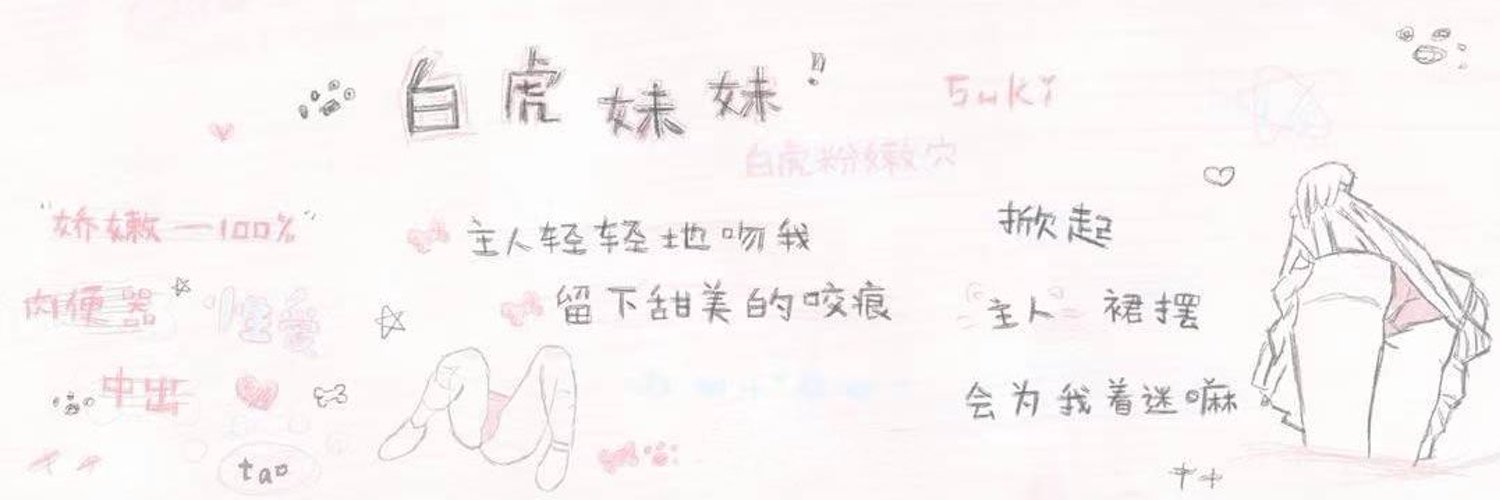 白虎妹妹!!
Suki
白虎粉嫩穴
"娇嫩一100%"
主人轻轻地吻我
掀起
肉便器
性爱
留下甜美的咬痕
主人 裙摆
中出
会为我着迷嘛
tao